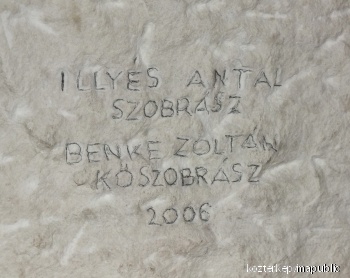 ILLYÉS ANTAL
SZOBRÁSZ
BENKE ZOLTÁN
KŐSZOBRÁSZ
2006
kozterkep/mapublic